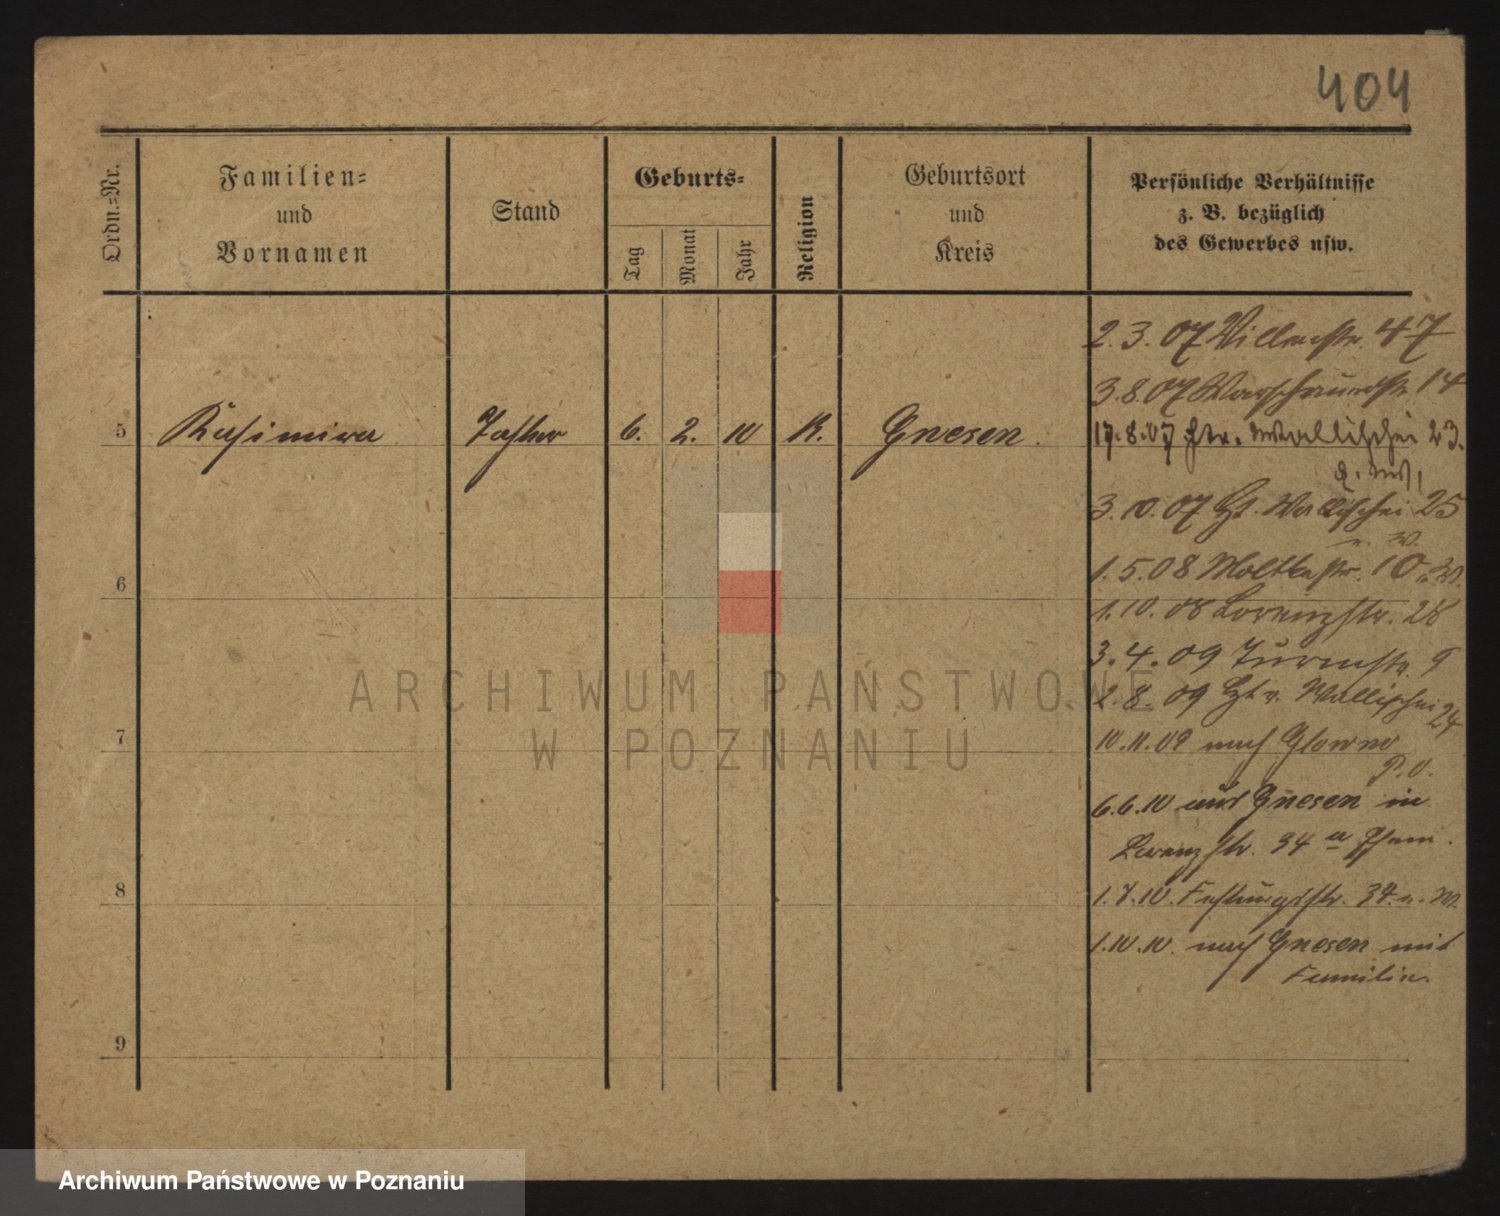 404
Ordn.=Nr.
Familien=
und
Vornamen
Stand
Geburts=
Tag
Monat
Jahr
Religion
Geburtsort
und
Kreis
Persönliche Verhältnisse
z. B. bezüglich
des Gewerbes usw.
2. 3. 07 Villenstr. 47
3. 8. 07 Warschauerstr. 14
5 Kasimira Tochter 6. 2. 10 K. Gnesen.
17. 8. 07 Wallischei 23.
3. 10. 07 Wallischei 25
u. W.
6
1. 5. 08 Moltkestr. 10 u. W.
1. 10. 08 Lorenzstr. 28
3. 4. 09 Turmstr. 9
2. 8. 09 Wallischei 24
7
10. 11. 09 nach Glowno
P. O.
6. 6. 10 aus Gnesen in
Lorenzstr. 34 a
8
1. 7. 10. Festungsstr. 34. u. W.
1. 10. 10. nach Gnesen mit
Familie.
9
ARCHIWUM PAŃSTWOWE
W POZNANIU
Archiwum Państwowe w Poznaniu